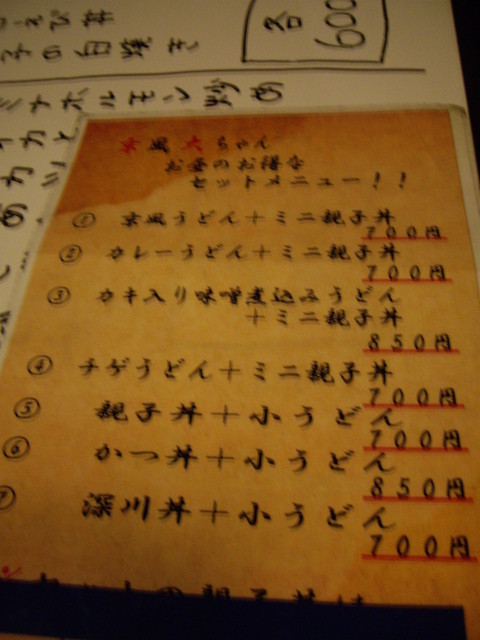 えび丼
子の白焼き
各600
ミナホルモン炒め
京風大ちゃん
お昼のお得な
セットメニュー！！
① 京風うどん＋ミニ親子丼
700円
② カレーうどん＋ミニ親子丼
700円
③ カキ入り味噌煮込みうどん
＋ミニ親子丼
850円
④ チゲうどん＋ミニ親子丼
700円
⑤ 親子丼＋小うどん
700円
⑥ かつ丼＋小うどん
850円
⑦ 深川丼＋小うどん
700円